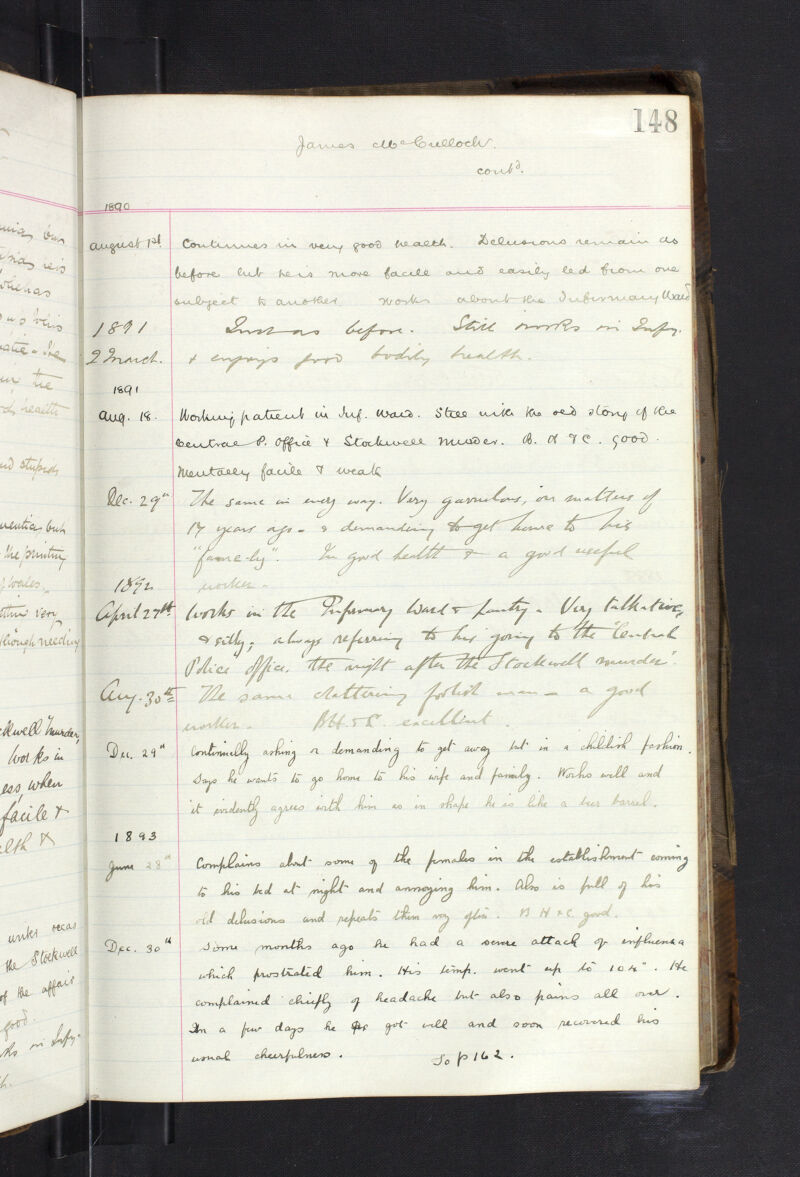 148
James McCulloch.
contd.
1890
August 1st. Continues in very good health. Delusions remain as
before but he is more facile and easily led from one
subject to another. Works about the Infirmary Ward
1891 Just as before. Still works in Infy.
2 March. & enjoys good bodily health.
1891
Aug. 18. Working patient in Inf. Ward. Still with the old story of the
Central P. Office & Stockwell Murder. B. H & C. good.
Mentally facile & weak
Dec. 29th The same in every way. Very garrulous, on matters of
17 years ago - & demanding to get home to his
"fam-e-ly". In good health & a good useful
worker.
1892
April 27th Works in the Infirmary Ward & Pantry - Very talkative,
& silly; always referring to his going to the "Central
Police Office, the night after the Stockwell murder".
Aug. 30th The same chattering foolish man - a good
worker. B H. & C. excellent.
Dec. 29th Continually asking or demanding to get away but in a childish fashion.
Says he wants to go home to his wife and family. Works well and
it evidently agrees with him as in shape he is like a beer barrel.
1893
June 28th Complains about some of the females in the establishment coming
to his bed at night and annoying him. Also is full of his
old delusions and repeats them very often. B H & C. good.
Dec. 30th Some months ago he had a severe attack of influenza
which prostrated him. His temp. went up to 104°. He
complained chiefly of headache but also pains all over.
In a few days he got well and soon recovered his
usual cheerfulness. To p 162.